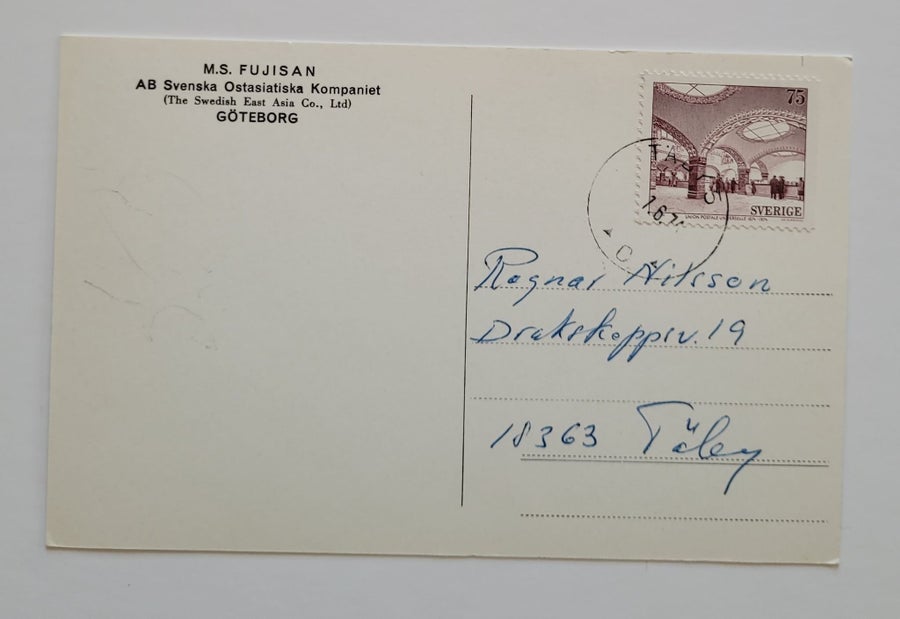 M.S. FUJISAN
AB Svenska Ostasiatiska Kompaniet
(The Swedish East Asia Co., Ltd)
GÖTEBORG
75
SVERIGE
UNION POSTALE UNIVERSELLE 1874-1974
TÄBY 5
1.6.74
Ragnar Nilsson
Drakskeppsv. 19
18363 Täby